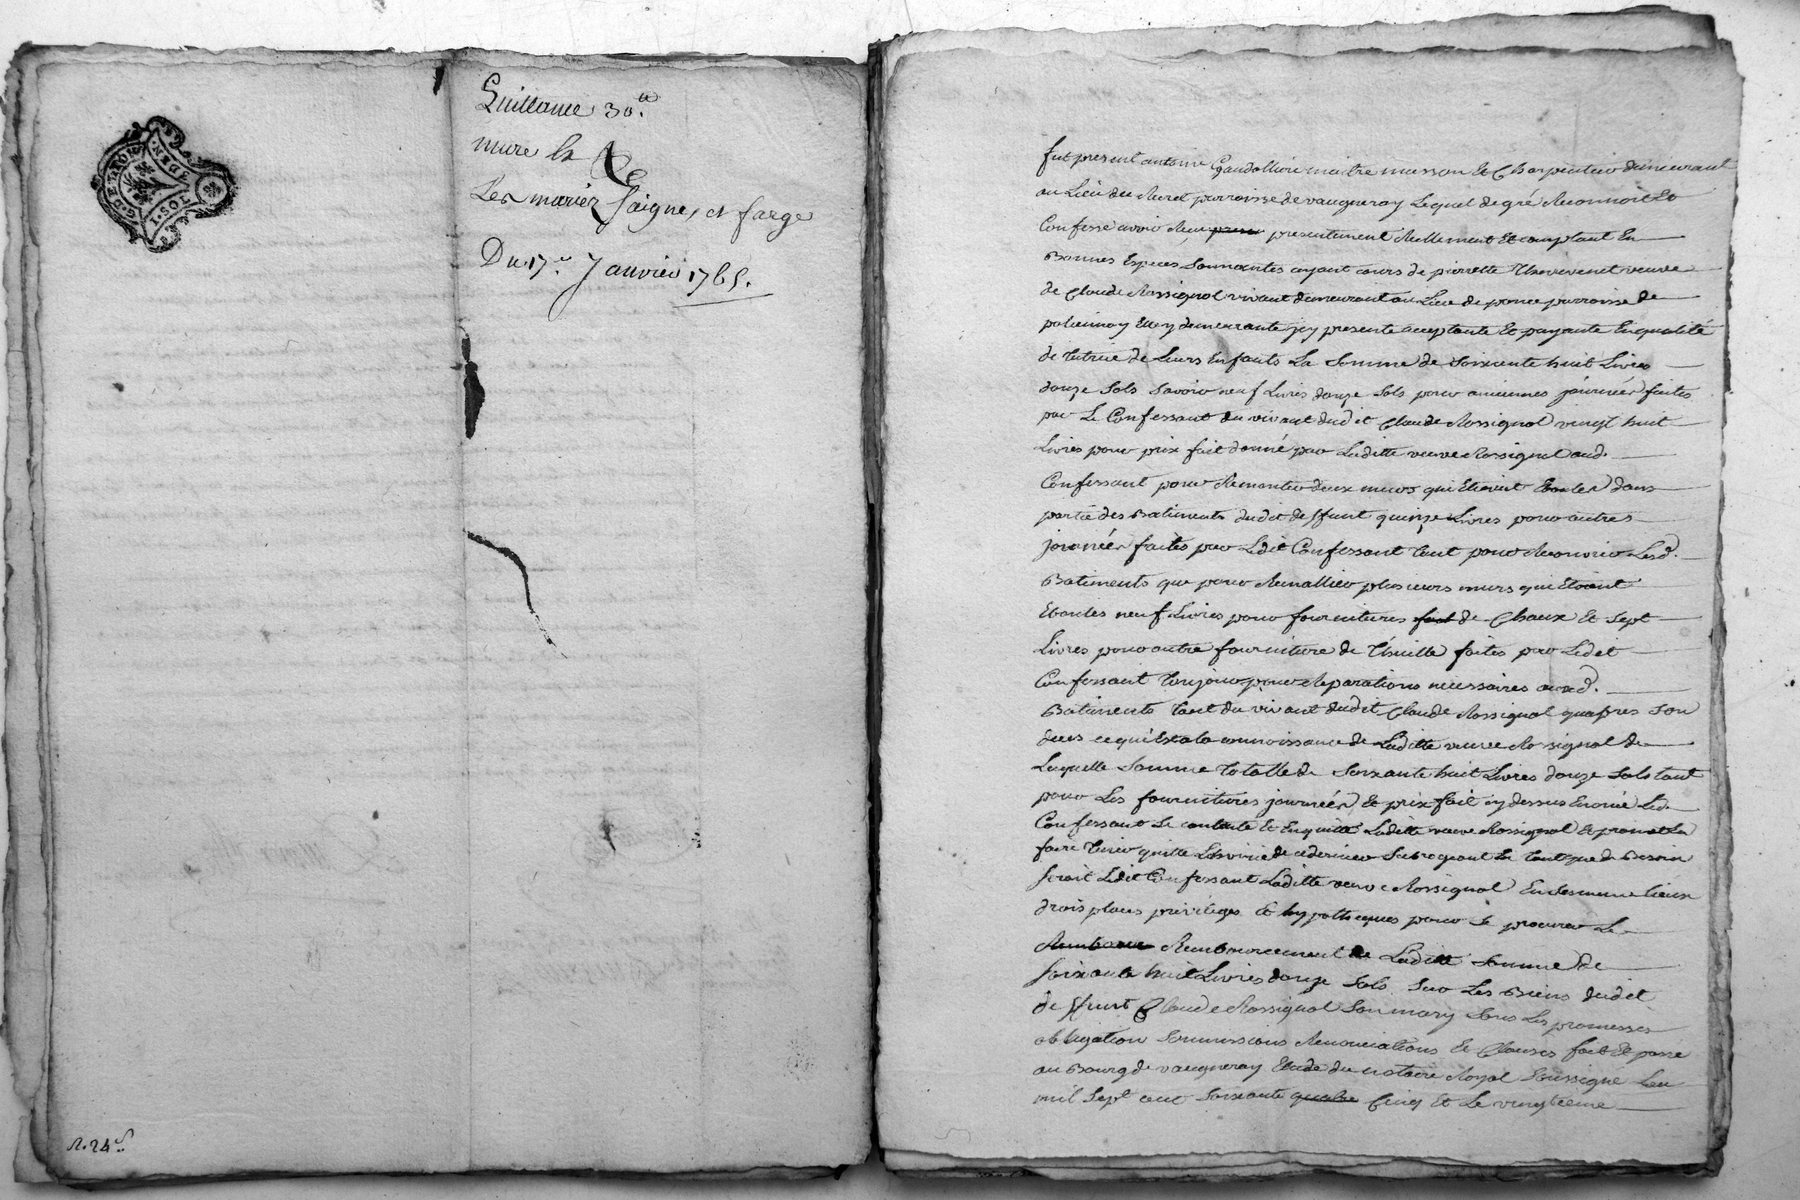 G.DE.LYON
I.SOL
8.DEN.
Quittance 30#
mure le
Les mariez Saignes et farge
Du 17e Janvier 1765.
R. 24s
fut present antoine Gaudolliere maitre masson et Charpentier demeurant
au Lieu du Meret parroisse de vaugneray Lequel de gré Reconnoit Et
Confesse avoir Receu presentement Reellement Et comptant En
Bonnes Especes Sonnantes ayant cours de pierrette Thevevenet veuve
de Claude Rossignol vivant demeurant au Lieu de ponce parroisse de
polieinnay Elley demeurante jcy presente acceptante Et payante Enqualité
de tutrice de Leurs Enfants La Somme de Soixante huit Livres
douze Sols Savoir neuf Livres douze Sols pour anciennes journées faites
par Le Confessant du vivant dudit Claude Rossignol vingt huit
Livres pour prix fait donné par Laditte veuve Rossignol aud.
Confessant pour Remonter deux murs qui Etoient Eboulés dans
partie des Batiments dudit deffunt quinze Livres pour autres
journées faites par Ledit Confessant tant pour Recouvrir Lesd.
Batiments que pour Remallier plusieurs murs qui Etoient
Eboules neuf Livres pour fournitures de Chaux Et Sept
Livres pour autre fourniture de Thuille faites par Ledit
Confessant toujours pour Reparations necessaires auxd.
Batiments tant du vivant dudit Claude Rossignol quapres son
deces ce qui Est a la connoissance de Laditte veuve Rossignol de
Laquelle Somme totalle de Soixante huit Livres douze Sols tant
pour Les fournitures journées Et prix fait cy dessus Enoncé Led.
Confessant Se contente Et Enquitte Laditte veuve Rossignol Et promet La
faire tenir quitte Subrogeant En tant que de Besoin
Seroit Ledit Confessant Laditte veuve Rossignol En Ses meme lieux
droits places privileges Et hypotheques pour Se procurer Le
Remboursement de Laditte Somme de
Soixante huit Livres douze Sols Sur Les Biens dudit
deffunt Claude Rossignol Son mary Sous Les promesses
obligation Soumissions Renonciations Et Clauses fait Et passé
au Bourg de vaugneray Etude du notaire Royal Soussigné Lan
mil Sept cent Soixante quatre Cinq Et Le vingtieme